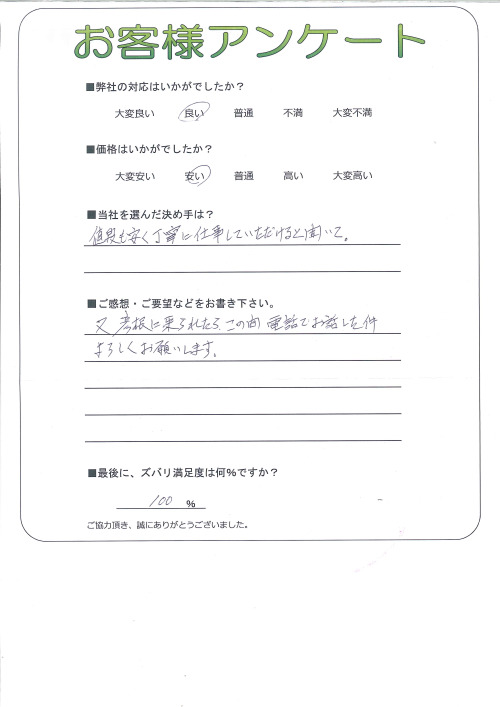 お客様アンケート
■弊社の対応はいかがでしたか？
大変良い 良い 普通 不満 大変不満
■価格はいかがでしたか？
大変安い 安い 普通 高い 大変高い
■当社を選んだ決め手は？
値段も安く丁寧に仕事していただけると聞いて。
■ご感想・ご要望などをお書き下さい。
又 彦根に来られたら、この間 電話でお話した件
よろしくお願いします。
■最後に、ズバリ満足度は何%ですか？
100 %
ご協力頂き、誠にありがとうございました。